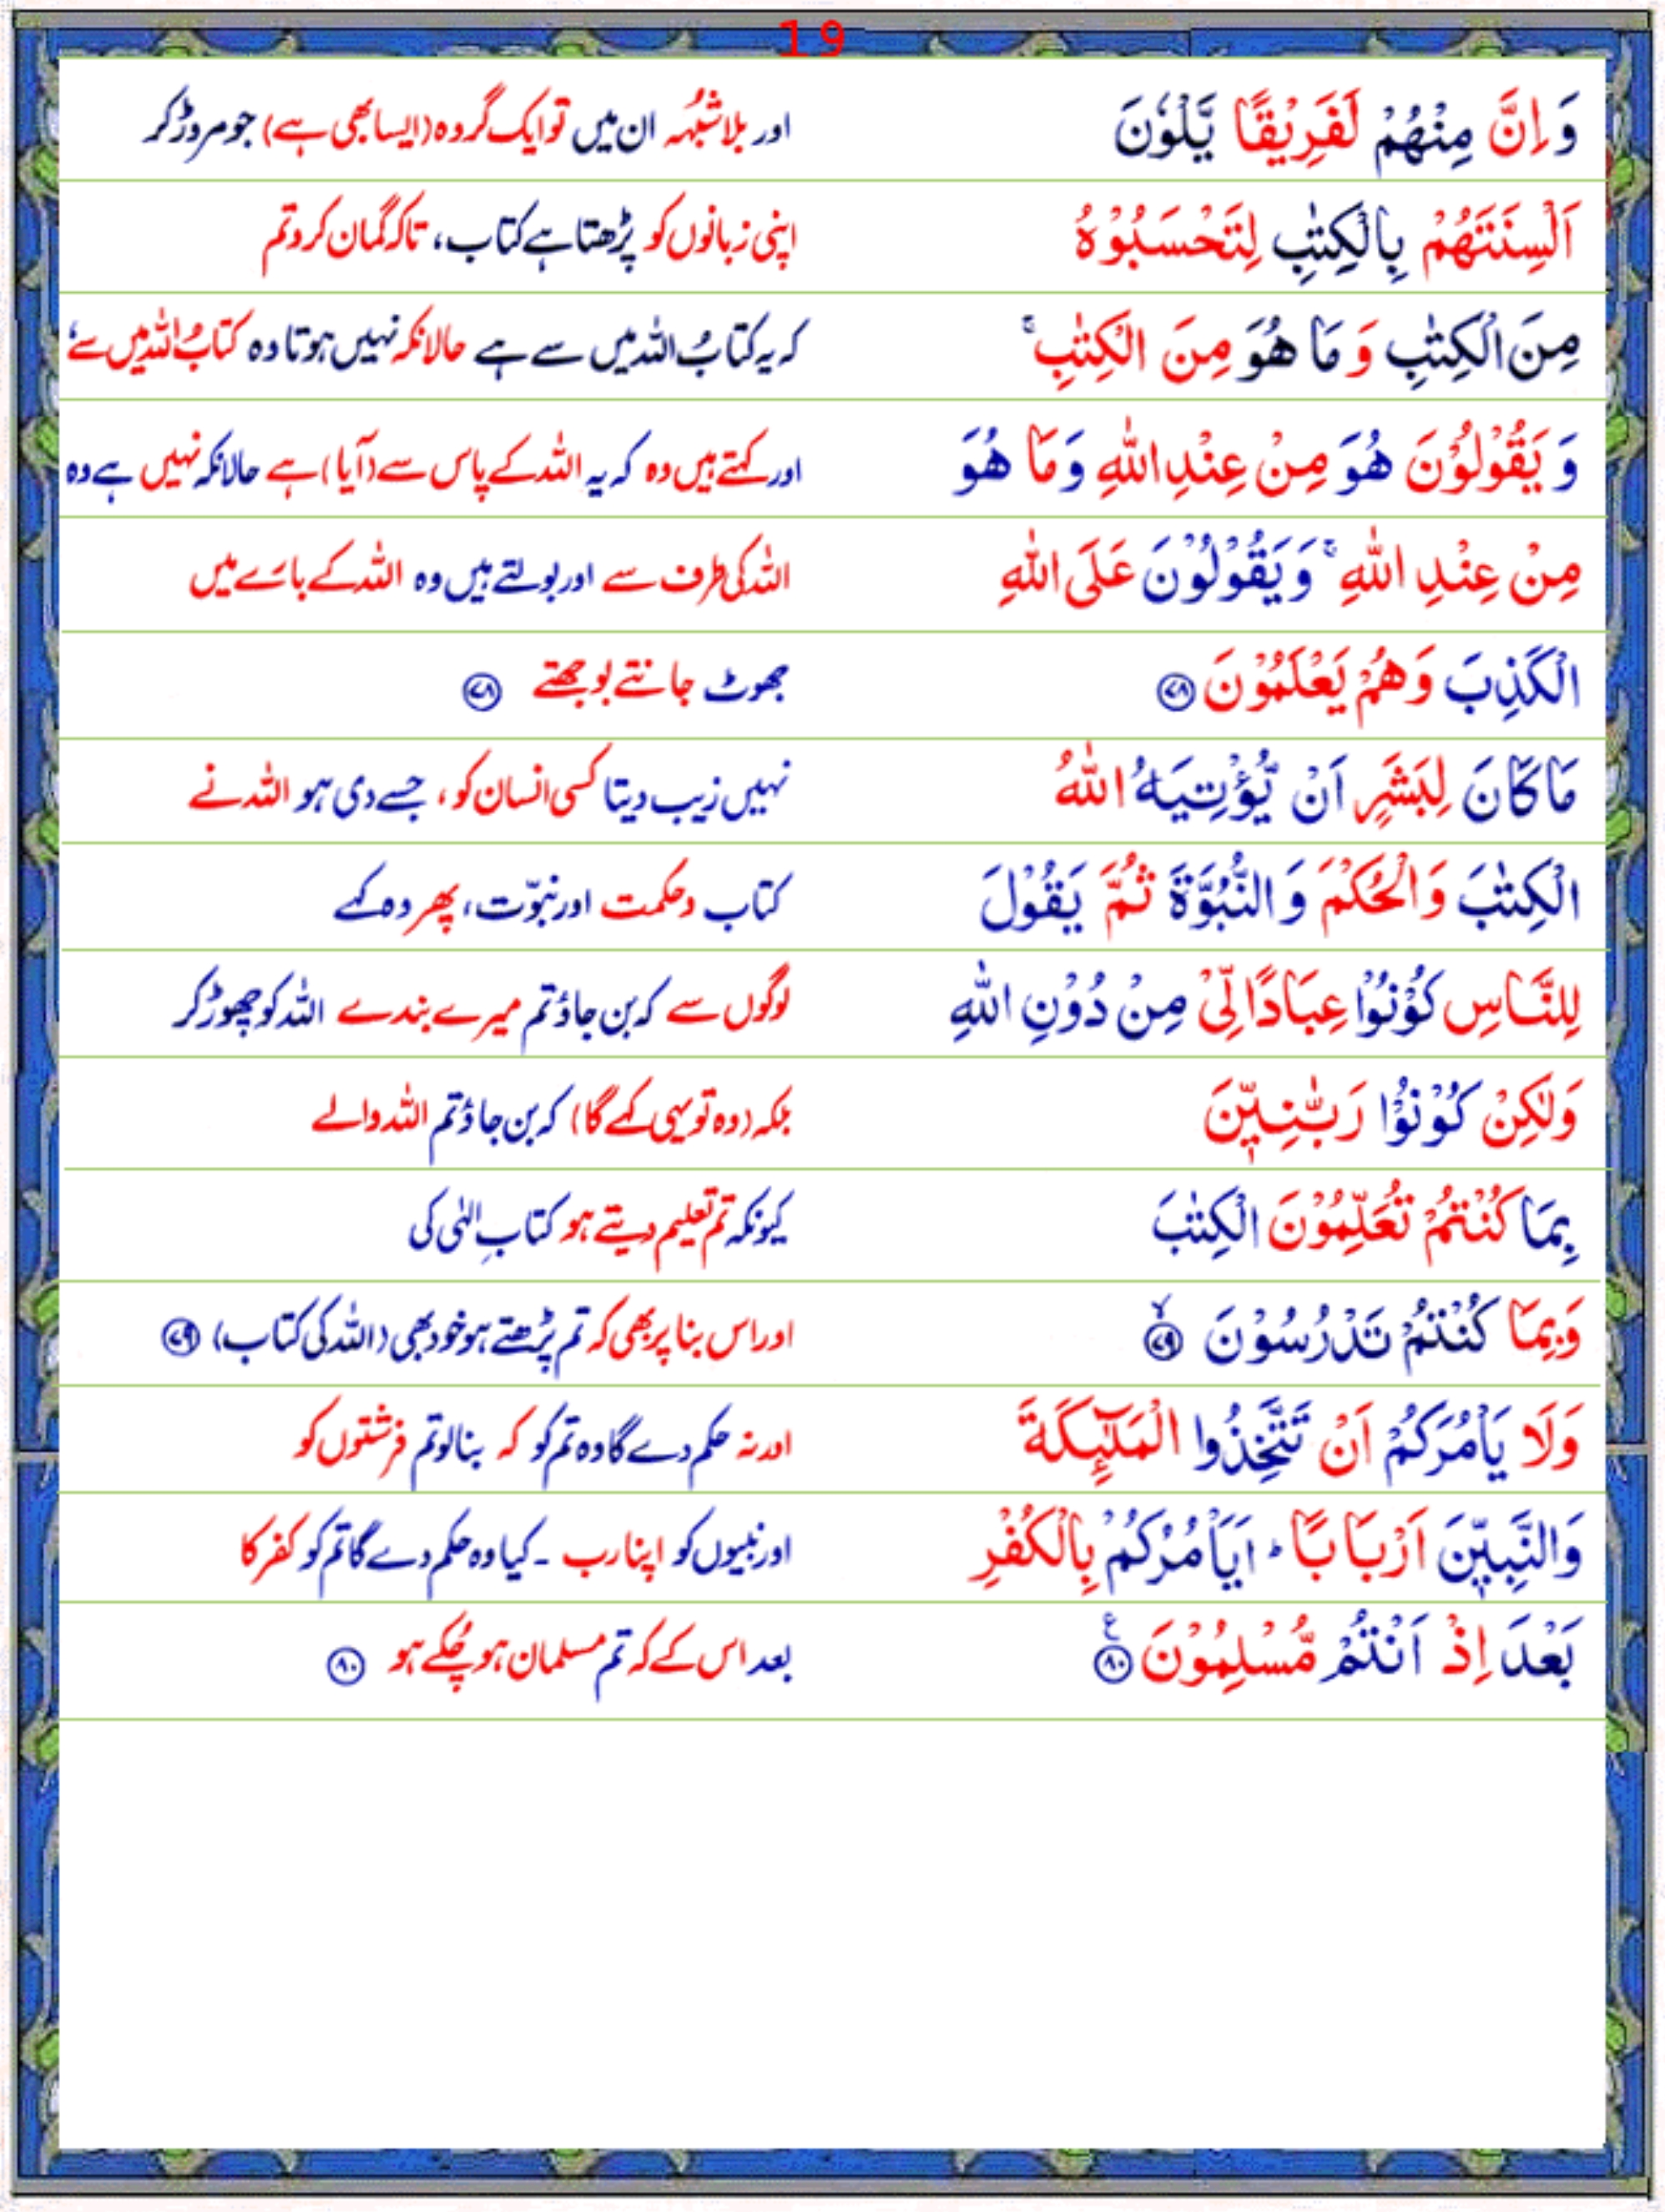 19
وَ اِنَّ مِنْهُمْ لَفَرِیْقًا یَّلْوٗنَ اور بلاشبُہہ ان میں تو ایک گروہ (ایسا بھی ہے) جو مروڑ کر
اَلْسِنَتَهُمْ بِالْكِتٰبِ لِتَحْسَبُوْهُ اپنی زبانوں کو پڑھتا ہے کتاب، تاکہ گمان کرو تم
مِنَ الْكِتٰبِ وَ مَا هُوَ مِنَ الْكِتٰبِ ۚ کہ یہ کتابُ اللہ میں سے ہے حالانکہ نہیں ہوتا وہ کتابُ اللہ میں سے
وَ یَقُوْلُوْنَ هُوَ مِنْ عِنْدِ اللّٰهِ وَ مَا هُوَ اور کہتے ہیں وہ کہ یہ اللہ کے پاس سے (آیا) ہے حالانکہ نہیں ہے وہ
مِنْ عِنْدِ اللّٰهِ ۚ وَ یَقُوْلُوْنَ عَلَی اللّٰهِ اللہ کی طرف سے اور بولتے ہیں وہ اللہ کے بارے میں
الْكَذِبَ وَ هُمْ یَعْلَمُوْنَ ﴿۷۸﴾ جھوٹ جانتے بوجھتے ﴿۷۸﴾
مَا كَانَ لِبَشَرٍ اَنْ یُّؤْتِیَهُ اللّٰهُ نہیں زیب دیتا کسی انسان کو، جسے دی ہو اللہ نے
الْكِتٰبَ وَ الْحُكْمَ وَ النُّبُوَّةَ ثُمَّ یَقُوْلَ کتاب وحکمت اور نبوّت، پھر وہ کہے
لِلنَّاسِ كُوْنُوْا عِبَادًا لِّیْ مِنْ دُوْنِ اللّٰهِ لوگوں سے کہ بن جاؤ تم میرے بندے اللہ کو چھوڑ کر
وَلٰكِنْ كُوْنُوْا رَبّٰنِیّٖنَ بلکہ (وہ تو یہی کہے گا) کہ بن جاؤ تم اللہ والے
بِمَا كُنْتُمْ تُعَلِّمُوْنَ الْكِتٰبَ کیونکہ تم تعلیم دیتے ہو کتابِ الٰہی کی
وَ بِمَا كُنْتُمْ تَدْرُسُوْنَ ﴿۷۹﴾ اور اس بنا پر بھی کہ تم پڑھتے ہو خود بھی (اللہ کی کتاب) ﴿۷۹﴾
وَلَا یَاْمُرَكُمْ اَنْ تَتَّخِذُوا الْمَلٰٓئِكَةَ اور نہ حکم دے گا وہ تم کو کہ بنا لو تم فرشتوں کو
وَالنَّبِیّٖنَ اَرْبَابًا ؕ اَیَاْمُرُكُمْ بِالْكُفْرِ اور نبیوں کو اپنا رب ۔ کیا وہ حکم دے گا تم کو کفر کا
بَعْدَ اِذْ اَنْتُمْ مُّسْلِمُوْنَ ﴿۸۰﴾ بعد اس کے کہ تم مسلمان ہو چُکے ہو ﴿۸۰﴾